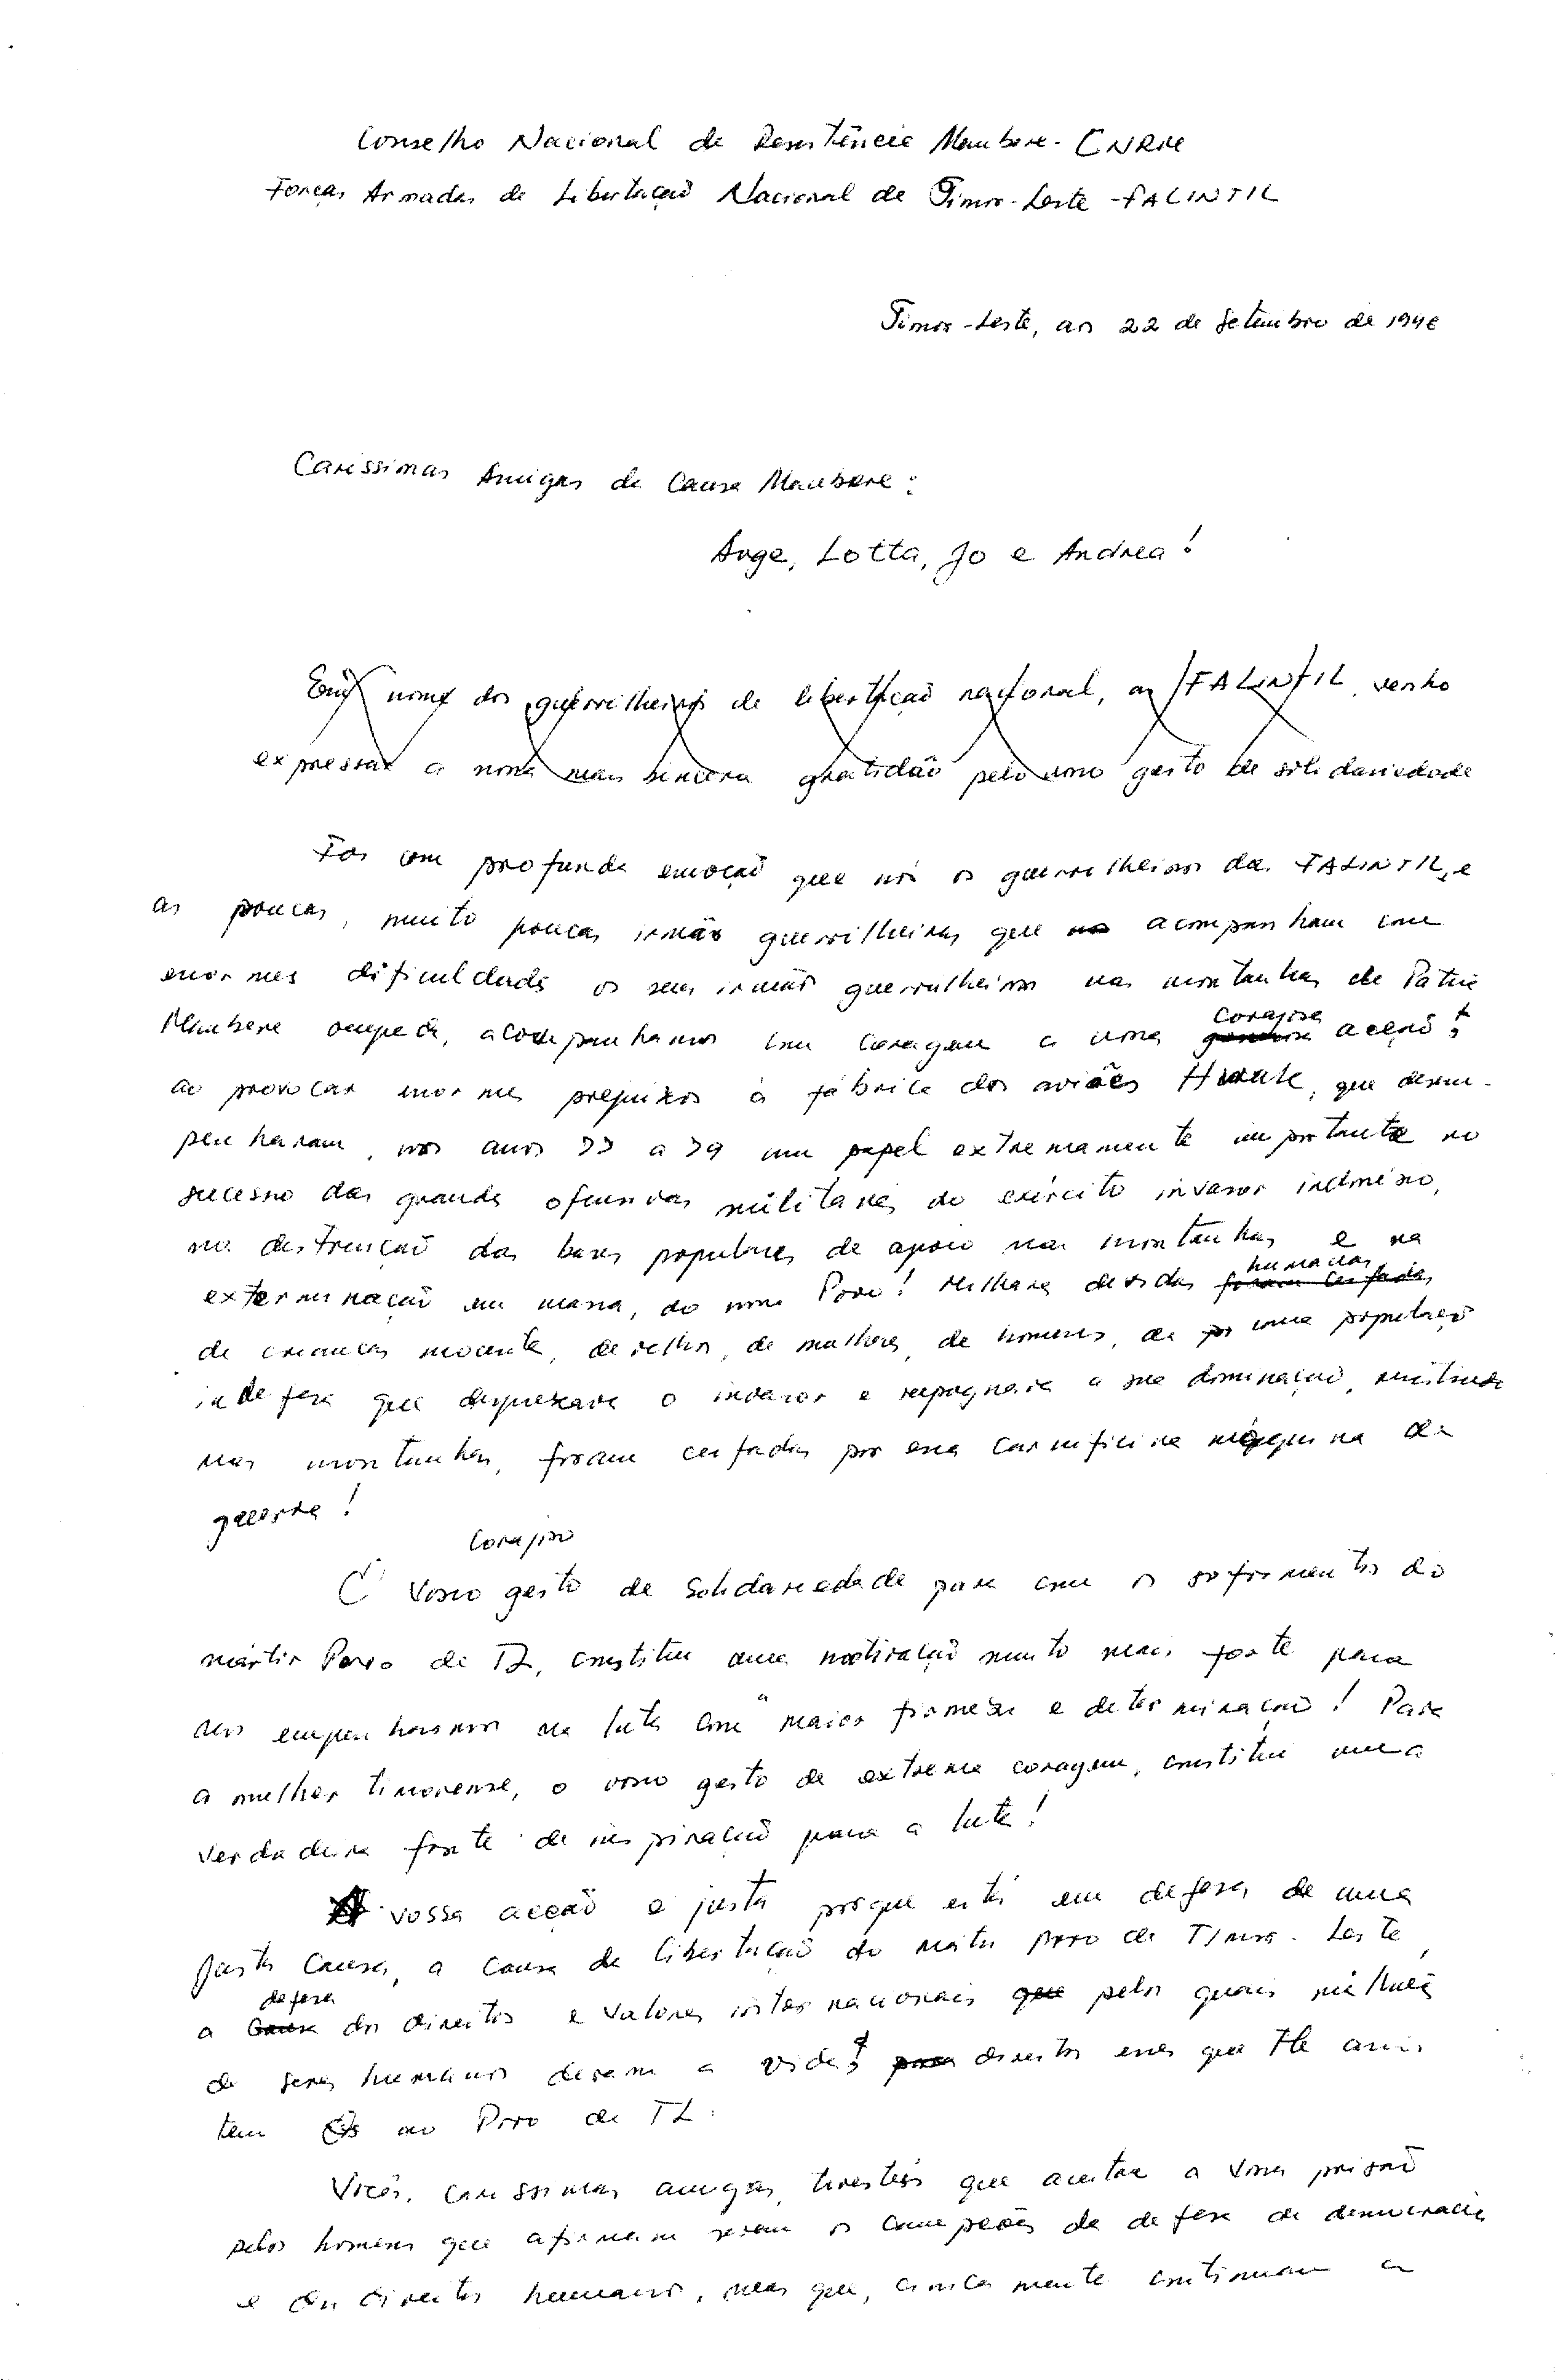 Conselho Nacional de Resistência Maubere - CNRM
Forças Armadas de Libertação Nacional de Timor-Leste - FALINTIL
Timor-Leste, aos 22 de Setembro de 1996
Caríssimas Amigas da Causa Maubere:
Ange, Lotta, Jo e Andrea!
Em nome dos guerrilheiros de libertação nacional, as FALINTIL, venho
expressar a nossa mais sincera gratidão pelo vosso gesto de solidariedade
Foi com profunda emoção que nós os guerrilheiros das FALINTIL, e
as poucas, muito poucas irmãs guerrilheiras que nos acompanham com
enormes dificuldades os seus irmãos guerrilheiros nas montanhas da Pátria
Maubere ocupada, acompanhamos com coragem a vossa corajosa acção:
ao provocar enormes prejuízos à fábrica dos aviões Hawk, que desem-
penharam, nos anos 77 a 79 um papel extremamente importante no
sucesso das grandes ofensivas militares do exército invasor indonésio,
na destruição das bases populares de apoio nas montanhas e na
exterminação em massa, do nosso Povo! Milhares de vidas humanas
de crianças inocentes, de velhos, de mulheres, de homens, de uma população
indefesa que desprezava o invasor e repugnava a sua dominação, resistindo
nas montanhas, foram ceifadas por essa carnificina máquina de
guerra!
corajoso
O Vosso gesto de Solidariedade para com os sofrimentos do
mártir Povo de TL, constitui uma motivação muito mais forte para
nos empenharmos na luta com a maior firmeza e determinação! Para
a mulher timorense, o vosso gesto de extrema coragem, constitui uma
verdadeira fonte de inspiração para a luta!
A vossa acção é justa porque está em defesa de uma
justa Causa, a Causa da libertação do mártir Povo de Timor-Leste,
a defesa dos direitos e valores internacionais pelos quais milhões
de seres humanos deram a vida; direitos esses que assis-
tem ao Povo de TL.
Vocês, caríssimas amigas, tivestes que aceitar a vossa prisão
pelos homens que afirmam serem os campeões da defesa da democracia
e dos direitos humanos, mas que, cinicamente continuam a